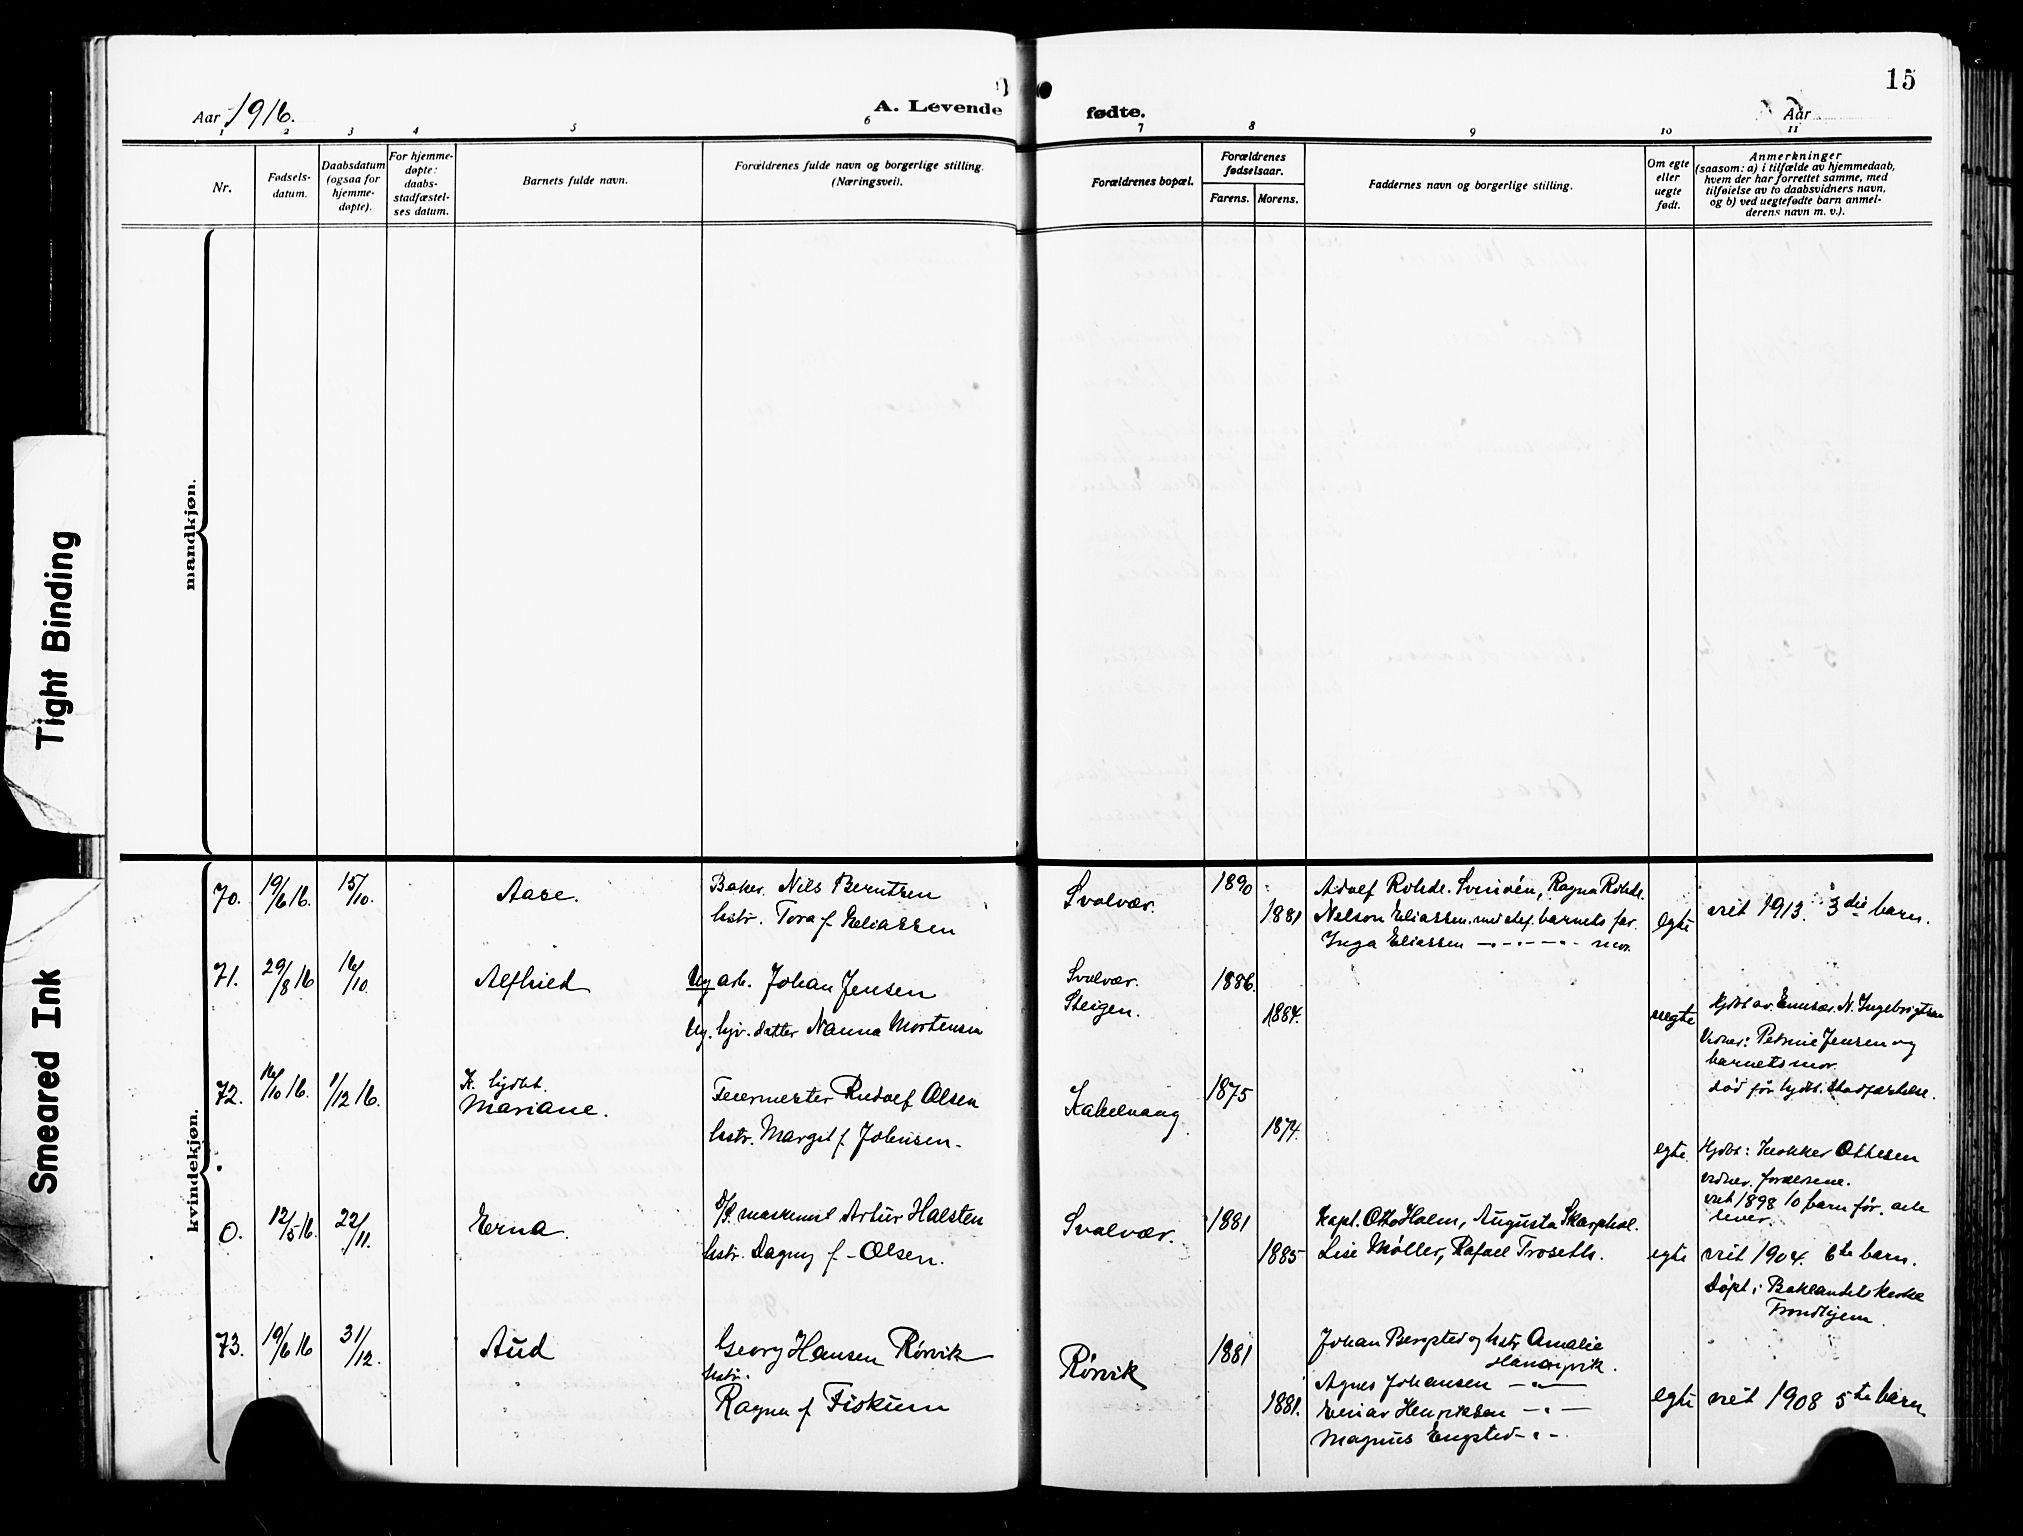 15
Aar 1916.
A. Levende fødte.
Aar
1 2 3 4 5 6 7 8 9 10 11
Nr.
Fødsels-
datum.
Daabsdatum
(ogsaa for
hjemme-
døpte).
For hjemme-
døpte:
daabs-
stadfæstel-
ses datum.
Barnets fulde navn.
Forældrenes fulde navn og borgerlige stilling.
(Næringsvei).
Forældrenes bopæl.
Forældrenes
fødselsaar.
Farens. Morens.
Faddernes navn og borgerlige stilling.
Om egte
eller
uegte
født.
Anmerkninger
(saasom: a) i tilfælde av hjemmedaab,
hvem der har forrettet samme, med
tilføielse av to daabsvidners navn,
og b) ved uegtefødte barn anmel-
derens navn m. v.).
mandkjøn.
Tight Binding
Smeared Ink
kvindekjøn.
70. 19/6 16. 15/10. Aase.
Baker. Nils Berntsen
hstr. Tora f. Eliassen
Svolvær. 1890 1881
Adolf Rohde. Svinøen, Ragna Rohde.
Nelson Eliassen. barnets far.
Inga Eliassen mor.
egte
viet 1913. 3die barn.
71. 29/8 16 16/10. Alfhild
Ug arb. Johan Jensen
Ug. hjv. datter Nanna Mortensen
Svolvær. 1886.
Steigen. 1884.
uegte
Hjdbt av. N. Ingebrigtsen
Vidner: Petrine Jensen og
barnets mor.
død før hjdbt. stadfæstelse.
72. 16/10 16. 1/12 16.
K. hjdbt.
Mariane.
Feiermester Rudolf Olsen
hstr. Margit f. Johnsen.
Kabelvaag. 1875 1874.
egte.
Hjdbt: Klokker Ottesen
vidner. forældrene.
viet 1898 10 barn før. alle
lever.
0. 12/5 16. 22/11. Erna.
D/S. maskinist Artur Halsten
hstr. Dagny f. Olsen.
Svolvær. 1881 1885
Kapt. Otto Holm, Augusta Skarphol.
Lise Møller, Rafael Troseth.
egte
viet 1904. 6te barn.
Døpt i Baklandets kirke
Trondhjem.
73. 19/6 16 31/12. Aud
Georg Hansen Rørvik
hstr.
Ragna f. Fiskum
Rørvik 1881 1881.
Johan Bergsted og hstr. Amalie
Agnes Johansen — " —
Einar Henriksen — " —
Magnus Engsted — " —
egte
viet 1908 5te barn